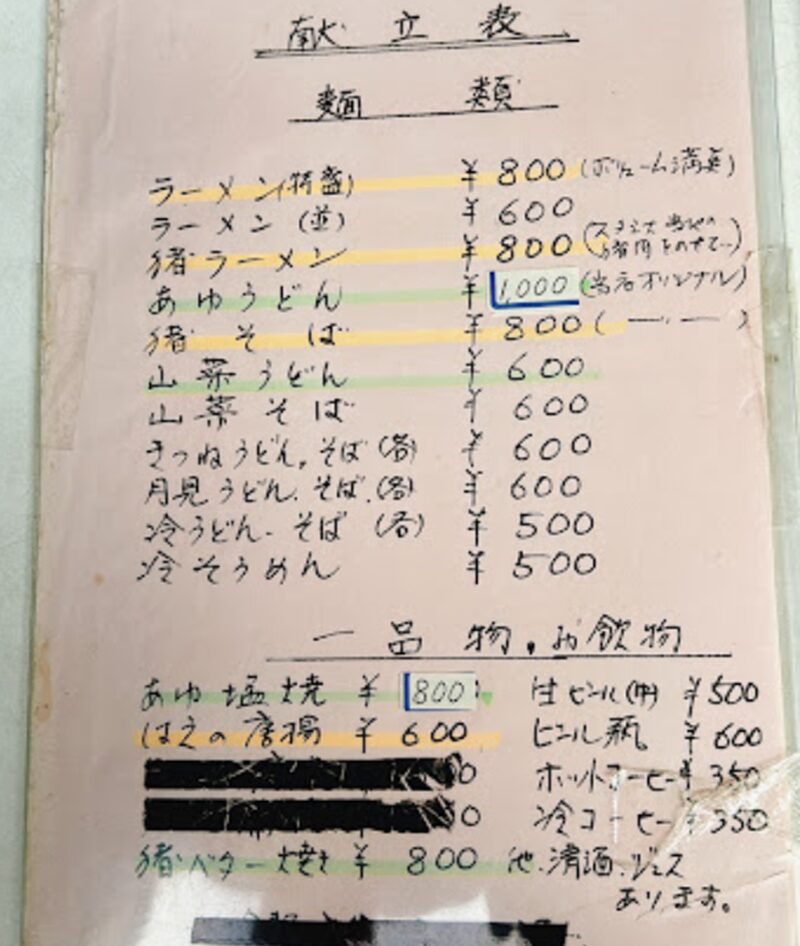 献立表
麺類
ラーメン(特盛) ¥800 (ボリューム満点)
ラーメン(並) ¥600
猪ラーメン ¥800 (スタミナ 当地の猪肉をのせて…)
あゆうどん ¥1,000 (当店オリジナル)
猪そば ¥800 (〃)
山菜うどん ¥600
山菜そば ¥600
きつねうどん、そば(各) ¥600
月見うどん、そば、(各) ¥600
冷うどん、そば(各) ¥500
冷そうめん ¥500
一品物、お飲物
あゆ塩焼 ¥800
はえの唐揚 ¥600
0
0
猪バター焼き ¥800
生ビール(中) ¥500
ビール瓶 ¥600
ホットコーヒー ¥350
冷コーヒー ¥350
他、清酒、ジュース
あります。